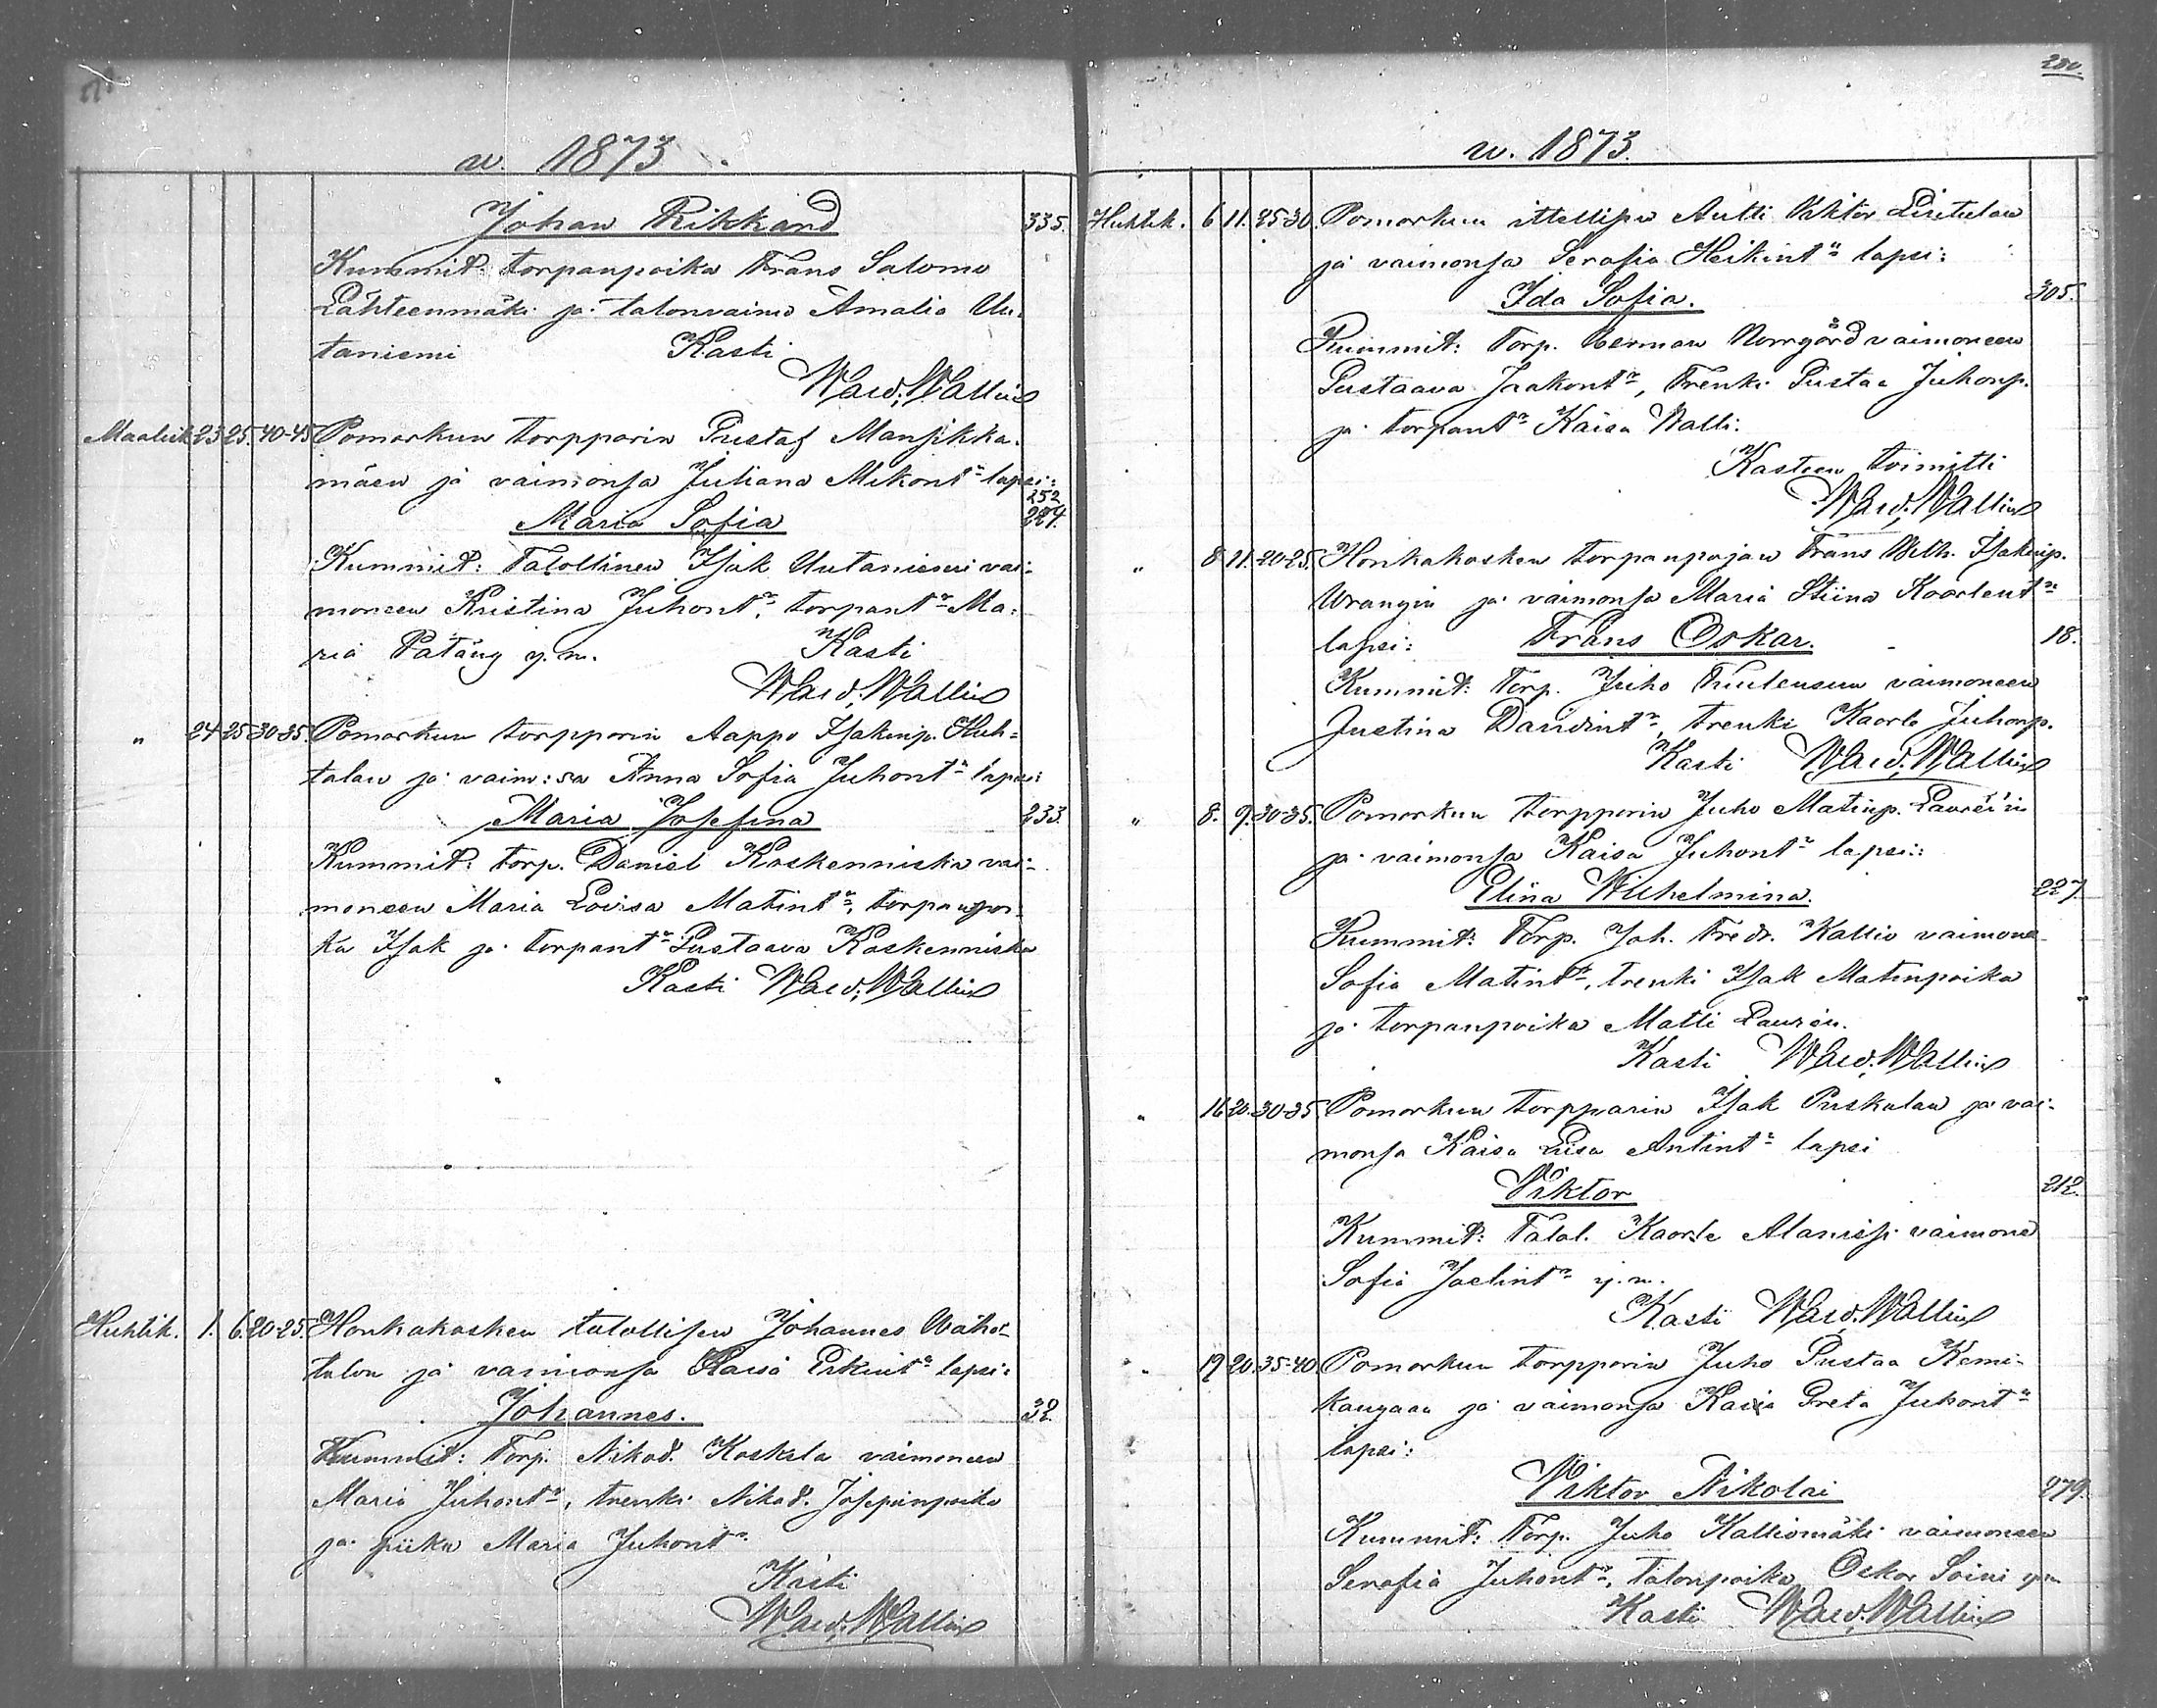 w. 1873.
Johan Rikkard 335.
Kummit: torpanpoika Frans Salomo
Lähteenmäki ja talonvaimo Amalia Uu-
taniemi Kasti
Wald. Wallin
Maalisk. 23 25. 40-45 Pomarkun torpparin Gustaf Mansikka-
mäen ja vaimonsa Juliana Mikontr lapsi:
252
Maria Sofia 227.
Kummit: Talollinen Isak Uutaniemi vai-
moneen Kristina Juhontr, torpantr Ma-
ria Patäng y. m. Kasti
Wald. Wallin
" 24 25 30-35. Pomarkun torpparin Aappo Isakinp. Huh-
talan ja vaim:sa Anna Sofia Juhontr lapsi:
Maria Josefina 233.
Kummit: torp. Daniel Koskenniska vai-
moneen Maria Lovisa Matintr, torpanpoi-
ka Isak ja torpantr Gustaava Koskenniska
Kasti Wald. Wallin
Huhtik. 1. 6. 20-25. Honkakosken talollisen Johannes Wähä-
talon ja vaimonsa Kaisa Erkintr lapsi:
Johannes. 32.
Kummit: Torp. Nikod. Koskela vaimoneen
Maria Juhontr, trenki Nikod. Josepinpoika
ja piika Maria Juhontr
Kasti
Wald. Wallin
280.
w. 1873.
Huhtik. 6 11. 25-30 Pomarkun itellisen Antti Viktor Lintulan
ja vaimonsa Serafia Heikintr lapsi:
Ida Sofia. 305.
Kummit: Torp. Herman Norrgård vaimoneen
Gustaava Jaakontr, trenki Gustaa Juhonp.
ja torpantr Kaisa Nalli.
Kasteen toimitti
Wald. Wallin
" 8 11. 20-25. Honkakosken torpanpojan Frans Wilh. Isakinp.
Wrangin ja vaimonsa Maria Stiina Kaarlentr
lapsi: Frans Oskar. 18.
Kummit: Torp. Juho Tuulensuu vaimoneen
Justina Davidintr, trenki Kaarlo Juhonp.
Kasti Wald. Wallin
" 8. 9. 30-35. Pomarkun torpparin Juho Matinp. Laurén'in
ja vaimonsa Kaisa Juhontr lapsi:
Elina Wilhelmina. 227.
Kummit: Torp. Joh. Fredr. Kallio vaimone
Sofia Matintr, trenki Isak Matinpoika
ja torpanpoika Matti Laurén.
Kasti Wald. Wallin
" 16 20. 30-35 Pomarkun torpparin Isak Puskalan ja vai-
monsa Kaisa Liisa Antintr lapsi
Viktor 212.
Kummit: Talol. Kaarle Alanissi vaimone
Sofia Joelintr y. m.
Kasti Wald. Wallin
" 19 20. 35-40 Pomarkun torpparin Juho Gustaa Kemi-
kangaan ja vaimonsa Kaisa Greta Juhontr
lapsi:
Viktor Nikolai 279.
Kummit: Torp. Juho Kalliomäki vaimoneen
Serafia Juhontr, talonpoika Oskar Soini ym
Kasti Wald. Wallin